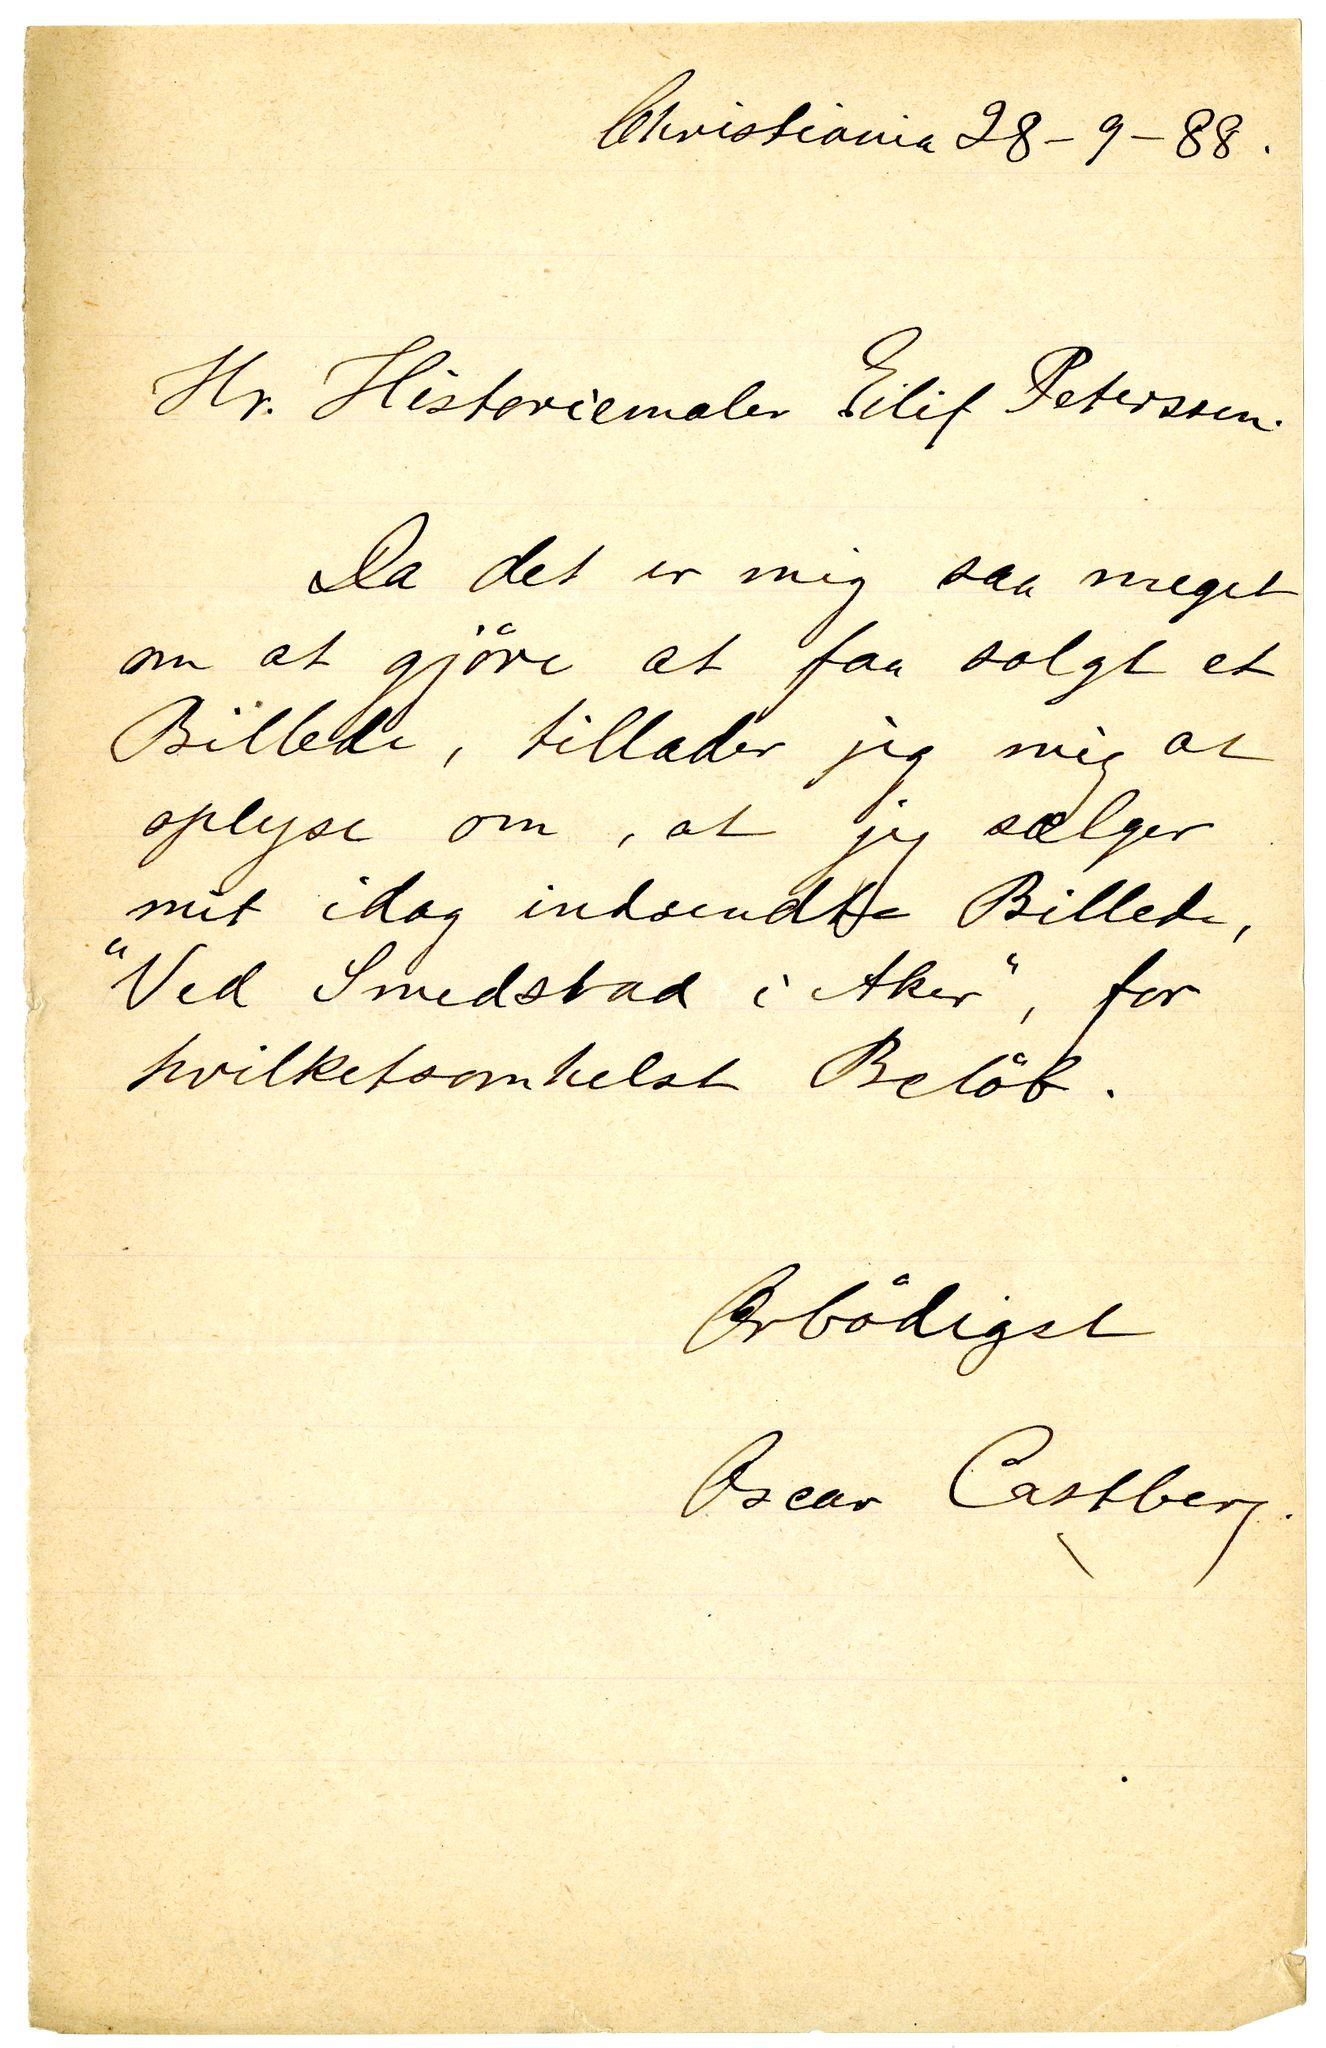 Christiania 28-9-88.
Hr. Historiemaler Eilif Peterssen.
Da det er mig saa meget
om at gjöre at faa solgt et
Billede, tillader jeg mig at
oplyse om, at jeg sælger
mit idag indsendte Billede,
"Ved Smedstad i Aker", for
hvilketsomhelst Belöb.
Ærbödigst
Oscar Castberg.